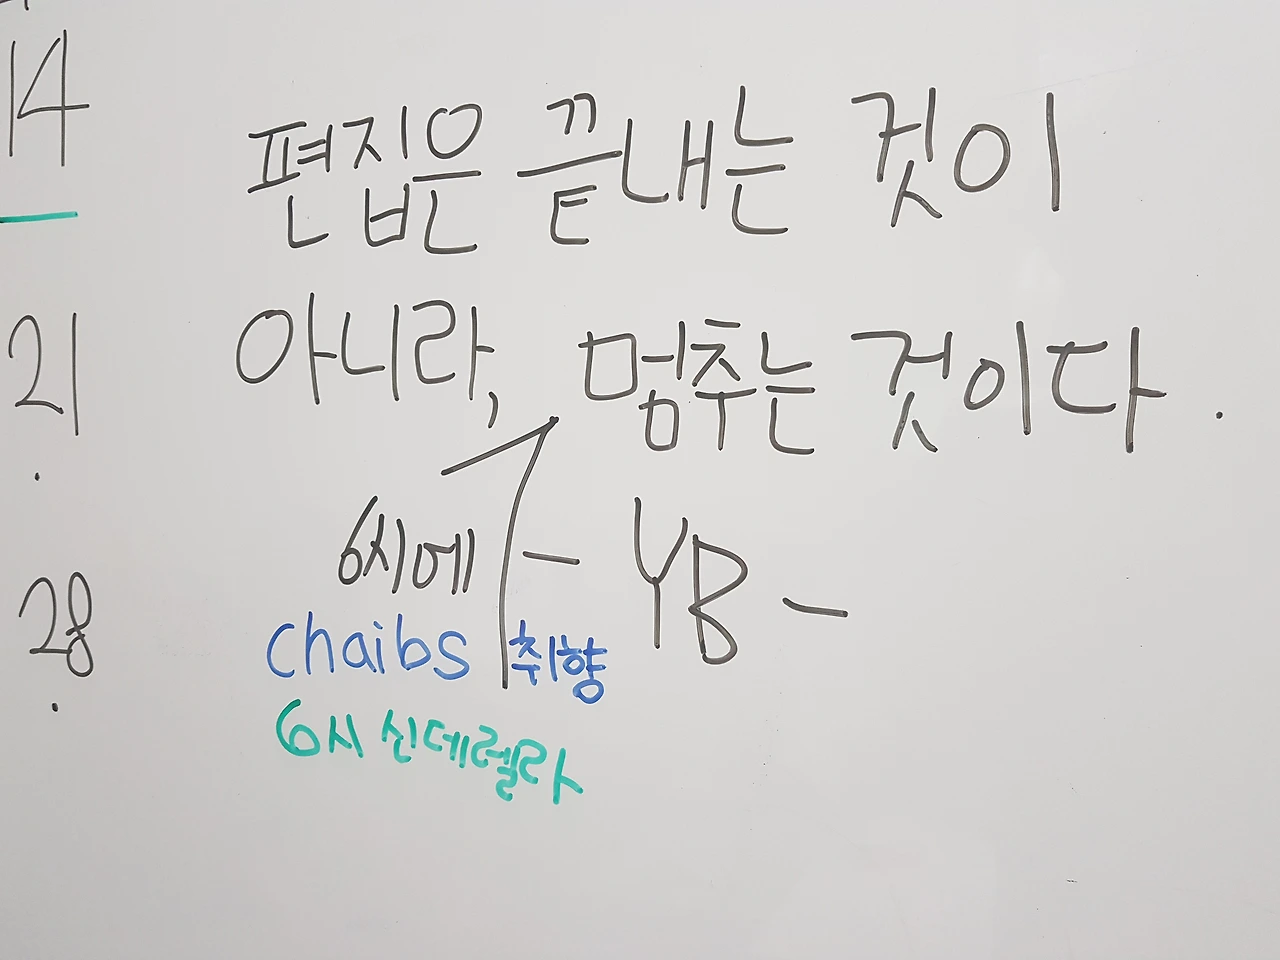 14
편집은 끝내는 것이
21
아니라, 멈추는 것이다.
6시에
- YB -
28
chaibs 취향
6시 신데렐라